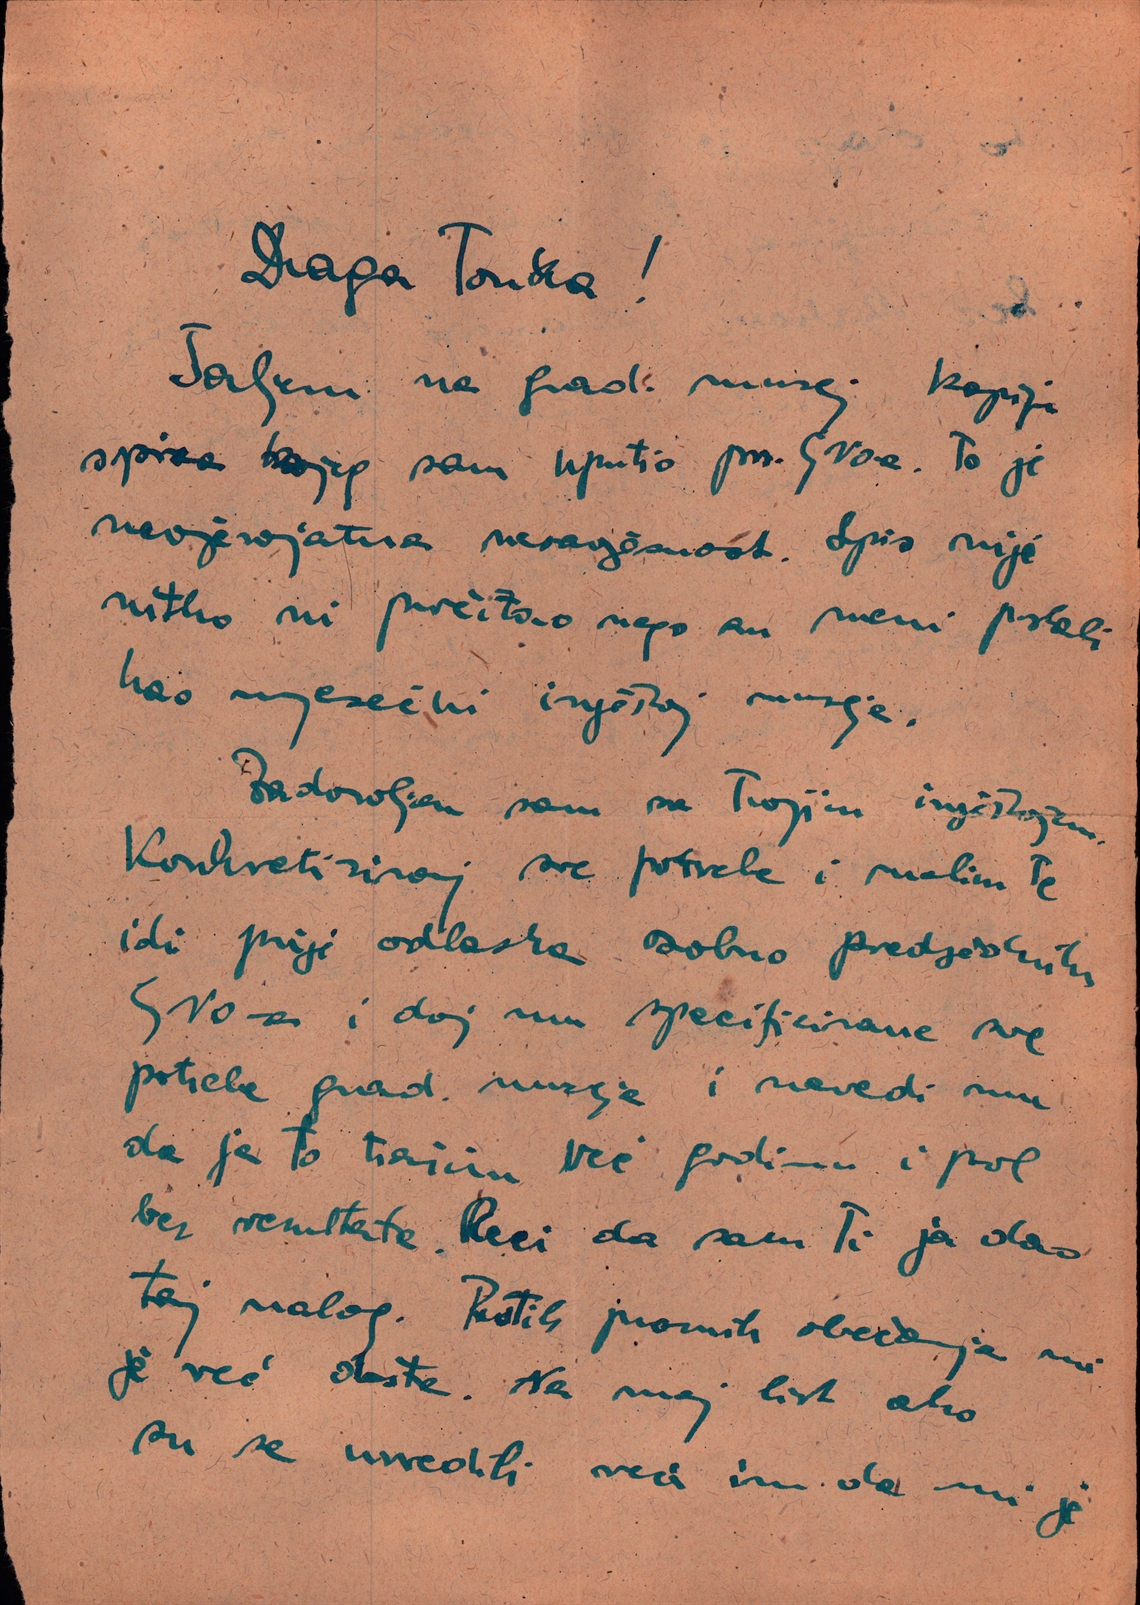 Draga Tonka!
Šaljem na grad. muzej kopiju
spisa kojeg sam uputio pov. GNO-a. To je
nevjerojatna nesavjesnost. Spis nije
nitko ni pročitao nego su meni poslali
kao mjesečni izvještaj muzeja.
Zadovoljan sam sa Tvojim izvještajem.
Konkretiziraj sve potrebe i molim Te
idi prije odlaska osobno predsjedniku
GNO-a i daj mu specificirane sve
potrebe grad. muzeja i navedi mu
da ja to tražim već godinu i pol
bez rezultata. Reci da sam Ti ja dao
taj nalog. Pustih praznih obećanja mi
je već dosta. Na moj list ako
su se uvredili reci im da mi je